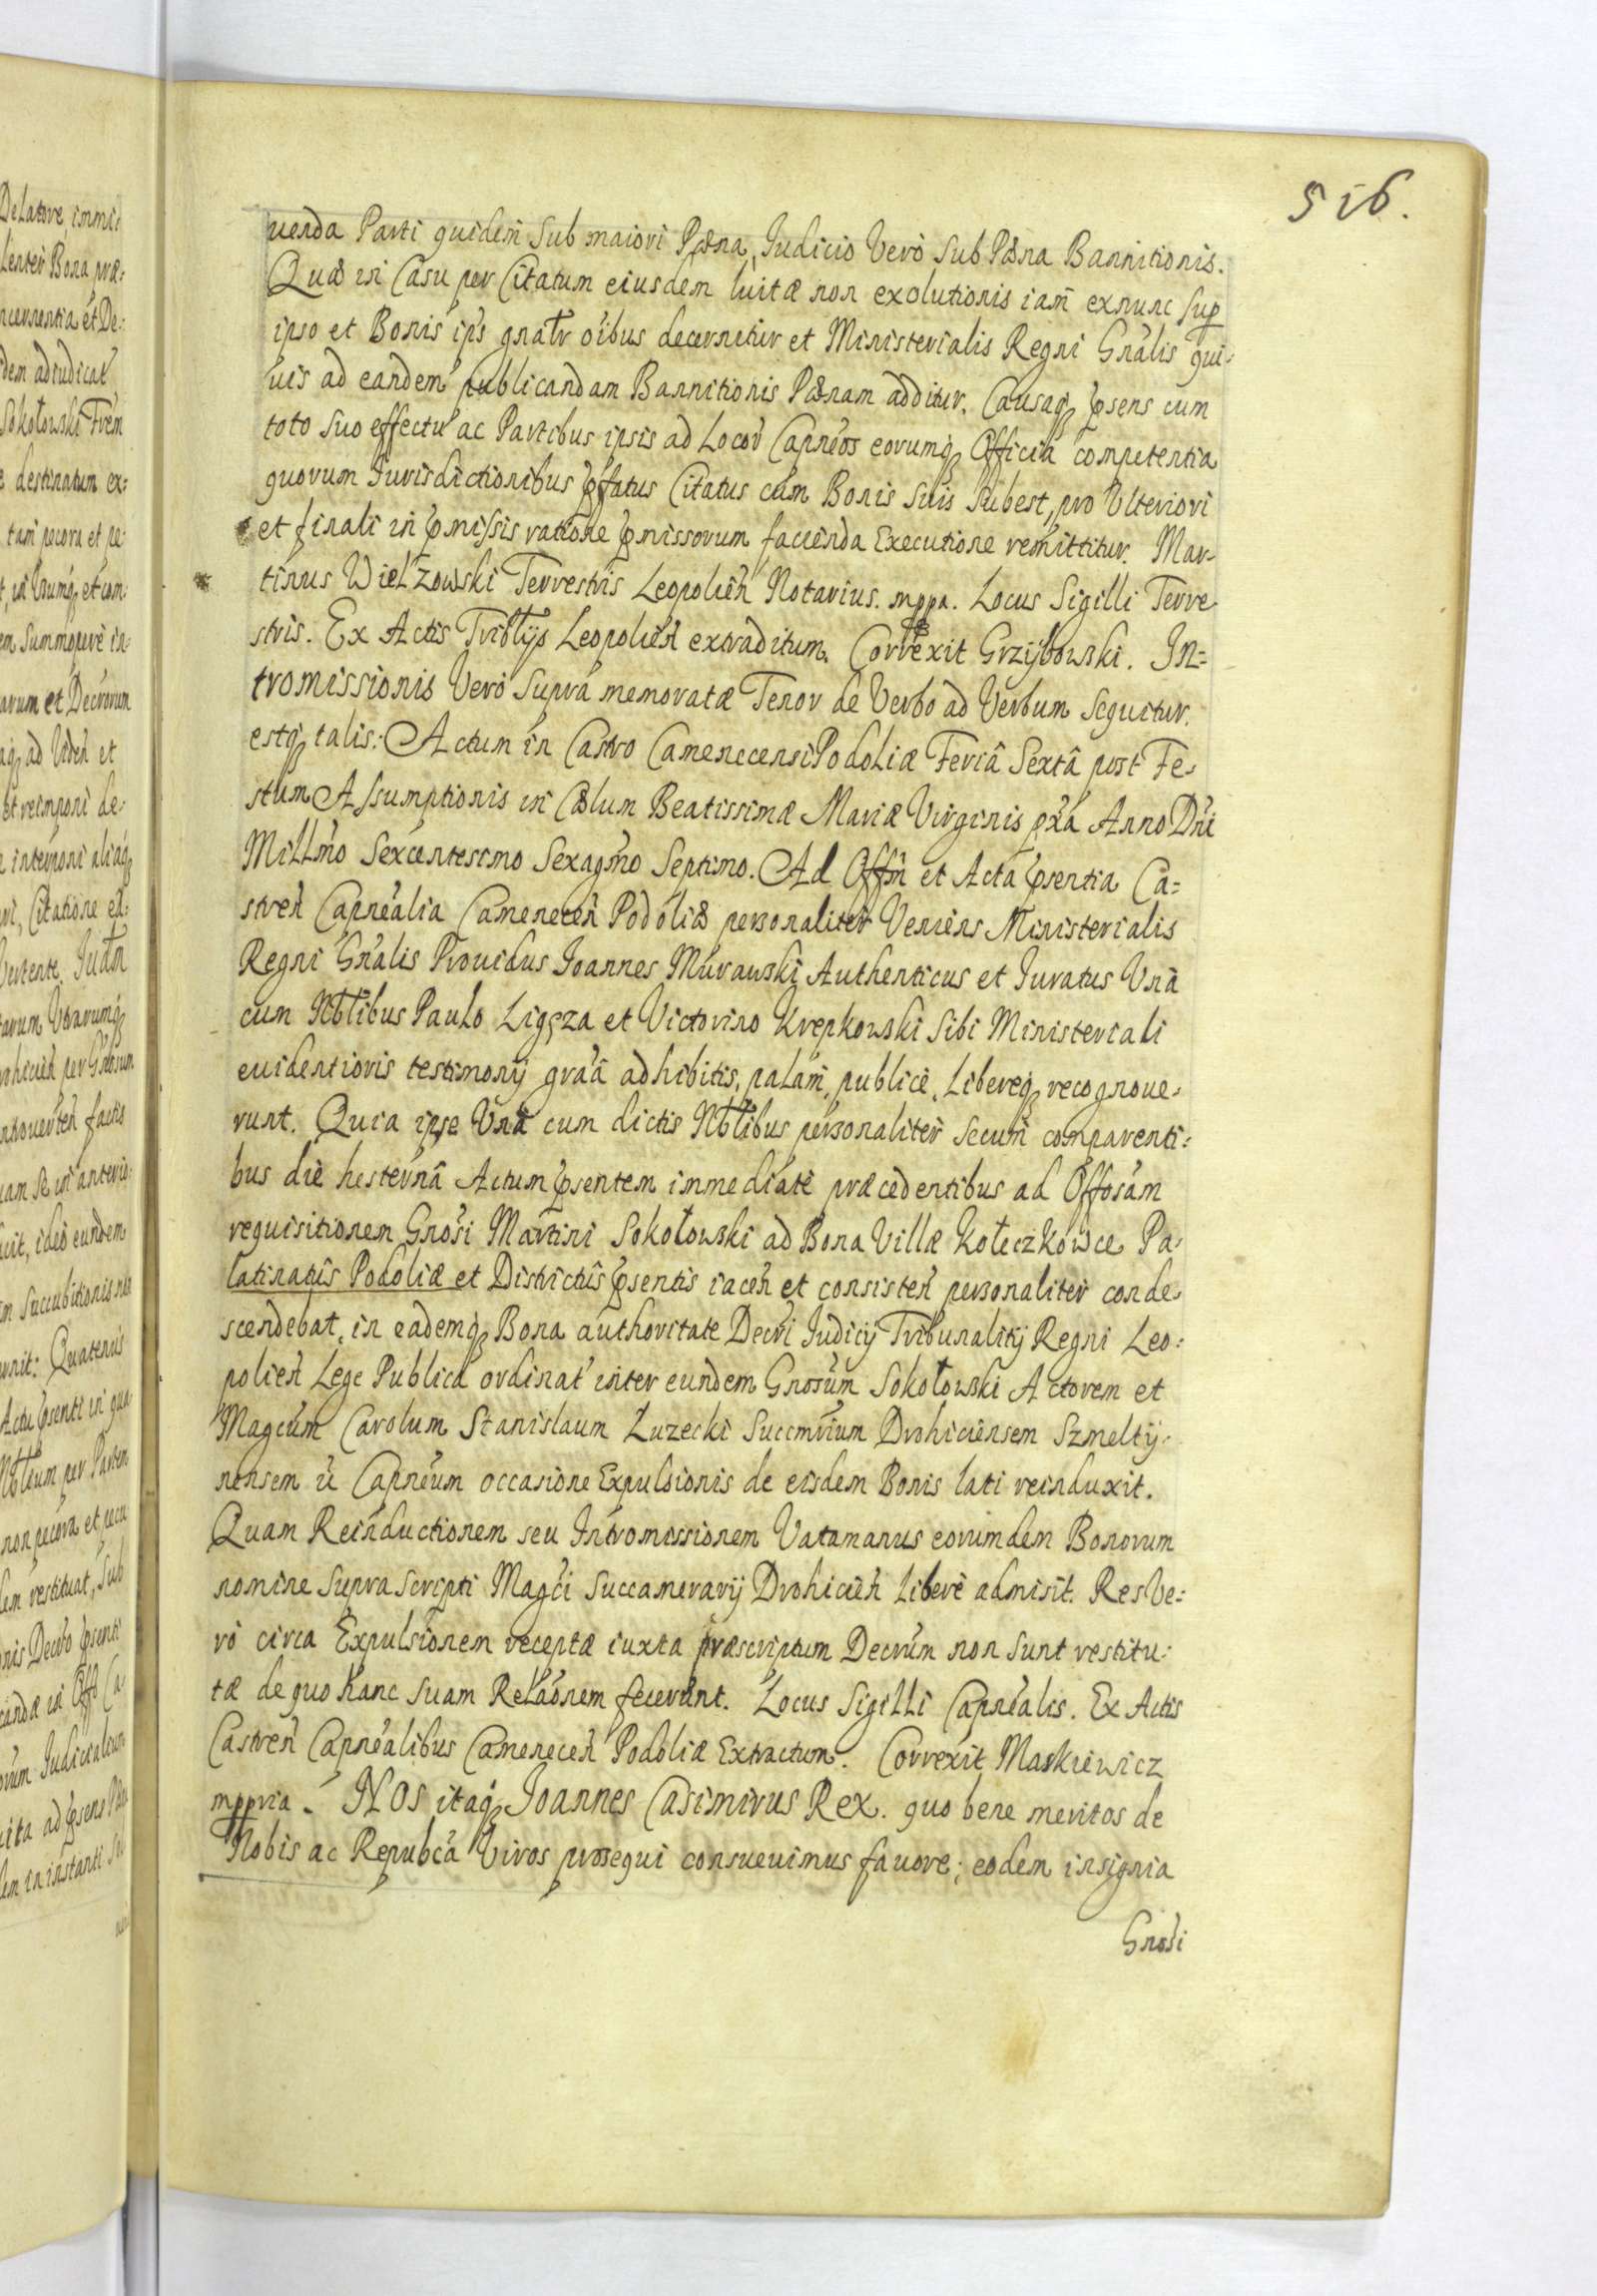 516.
uenda Parti quidem Sub maiori Pœna, Iudicio Vero Sub Pœna Bannitionis.
Quæ in Casu per Citatum eiusdem luitæ non exolutionis iam exnunc Sup
ipso et Bonis ips gnalr oibus decernitur et Ministerialis Regni Gnalis qui-
uis ad eandem publicandam Bannitionis Pœnam additur. Causaq psens cum
toto Suo effectu ac Partibus ipsis ad Locor Capneos eorumq Officia competentia
quorum Iurisdictionibus pfatus Citatus cum Bonis Suis Subest, pro Ulteriori
et finali in pmissis ratione pmissorum facienda Executione remittitur. Mar-
tinus Wielzowski Terrestris Leopolien Notarius. mppa. Locus Sigilli Terre
stris. Ex Actis Triblijs Leopolien extraditum. Correxit Grzijbowski. In=
tromissionis Vero Supra memoratæ Tenor de Verbo ad Verbum Sequitur.
estq talis: Actum in Castro Camenecensi Podoliæ Feriâ Sextâ post Fe-
stum Assumptionis in Cœlum Beatissimæ Mariæ Virginis pxa Anno Dni
Millmo Sexcentesimo Sexagmo Septimo. Ad Offm et Acta psentia Ca=
stren Capnealia Camenecen Podoliæ personaliter Veniens Ministerialis
Regni Gnalis Prouidus Ioannes Murawski Authenticus et Iuratus Una
cum Nblibus Paulo Ligęza et Victorino Krepkowski Sibi Ministeriali
euidentioris testimonij graa adhibitis, palam, publice, Libereq recognoue-
runt. Quia ipse Una cum dictis Nblibus personaliter Secum comparenti-
bus die hesternâ Actum psentem immediate præcedentibus ad Offosam
requisitionem Gnosi Martini Sokołowski ad Bona Villæ Kołeczkowce Pa-
latinatus Podoliæ et Districtûs psentis iacen et consisten personaliter conde-
scendebat, in eademq Bona authoritate Decri Iudicij Tribunalitij Regni Leo-
polien Lege Publica ordinat inter eundem Gnosum Sokołowski Actorem et
Magcum Carolum Stanislaum Luzecki Succmrium Drohiciensem Szmeltij-
nensem u Capneum occasione Expulsionis de eisdem Bonis lati reinduxit.
Quam Reinductionem seu Intromissionem Vatamanus eorumdem Bonorum
nomine Supra Scripti Magci Succamerarij Drohicien Libere admisit. Res Ve=
ro circa Expulsionem receptæ iuxta præscriptum Decrum non Sunt restitu-
tæ de quo hanc Suam Relaonem fecerunt. Locus Sigilli Capnealis. Ex Actis
Castren Capnealibus Camenecen Podoliæ Extractum. Correxit Maskiewicz
mppria. Nos itaq Ioannes Casimirus Rex. quo bene meritos de
Nobis ac Repubca Viros prosequi consueuimus fauore; eodem insignia
Gnosi